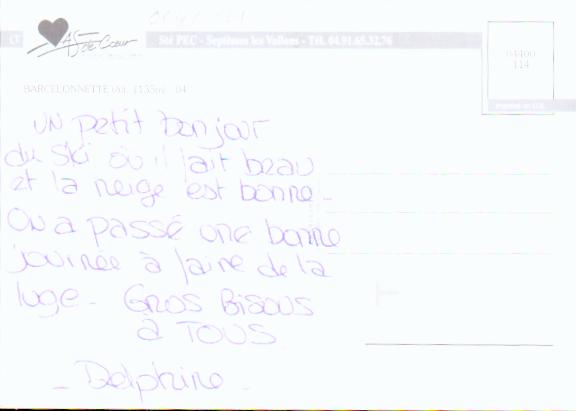 As de Cœur
Sté PEC - Septèmes les Vallons - Tél. 04.91.65.32.76
04400
114
BARCELONNETTE (Alt. 1135m) 04
un petit bonjour
du ski où il fait beau
et la neige est bonne -
On a passé une bonne
journée à faire de la
luge - GROS BISOUS
à TOUS
- Delphine -